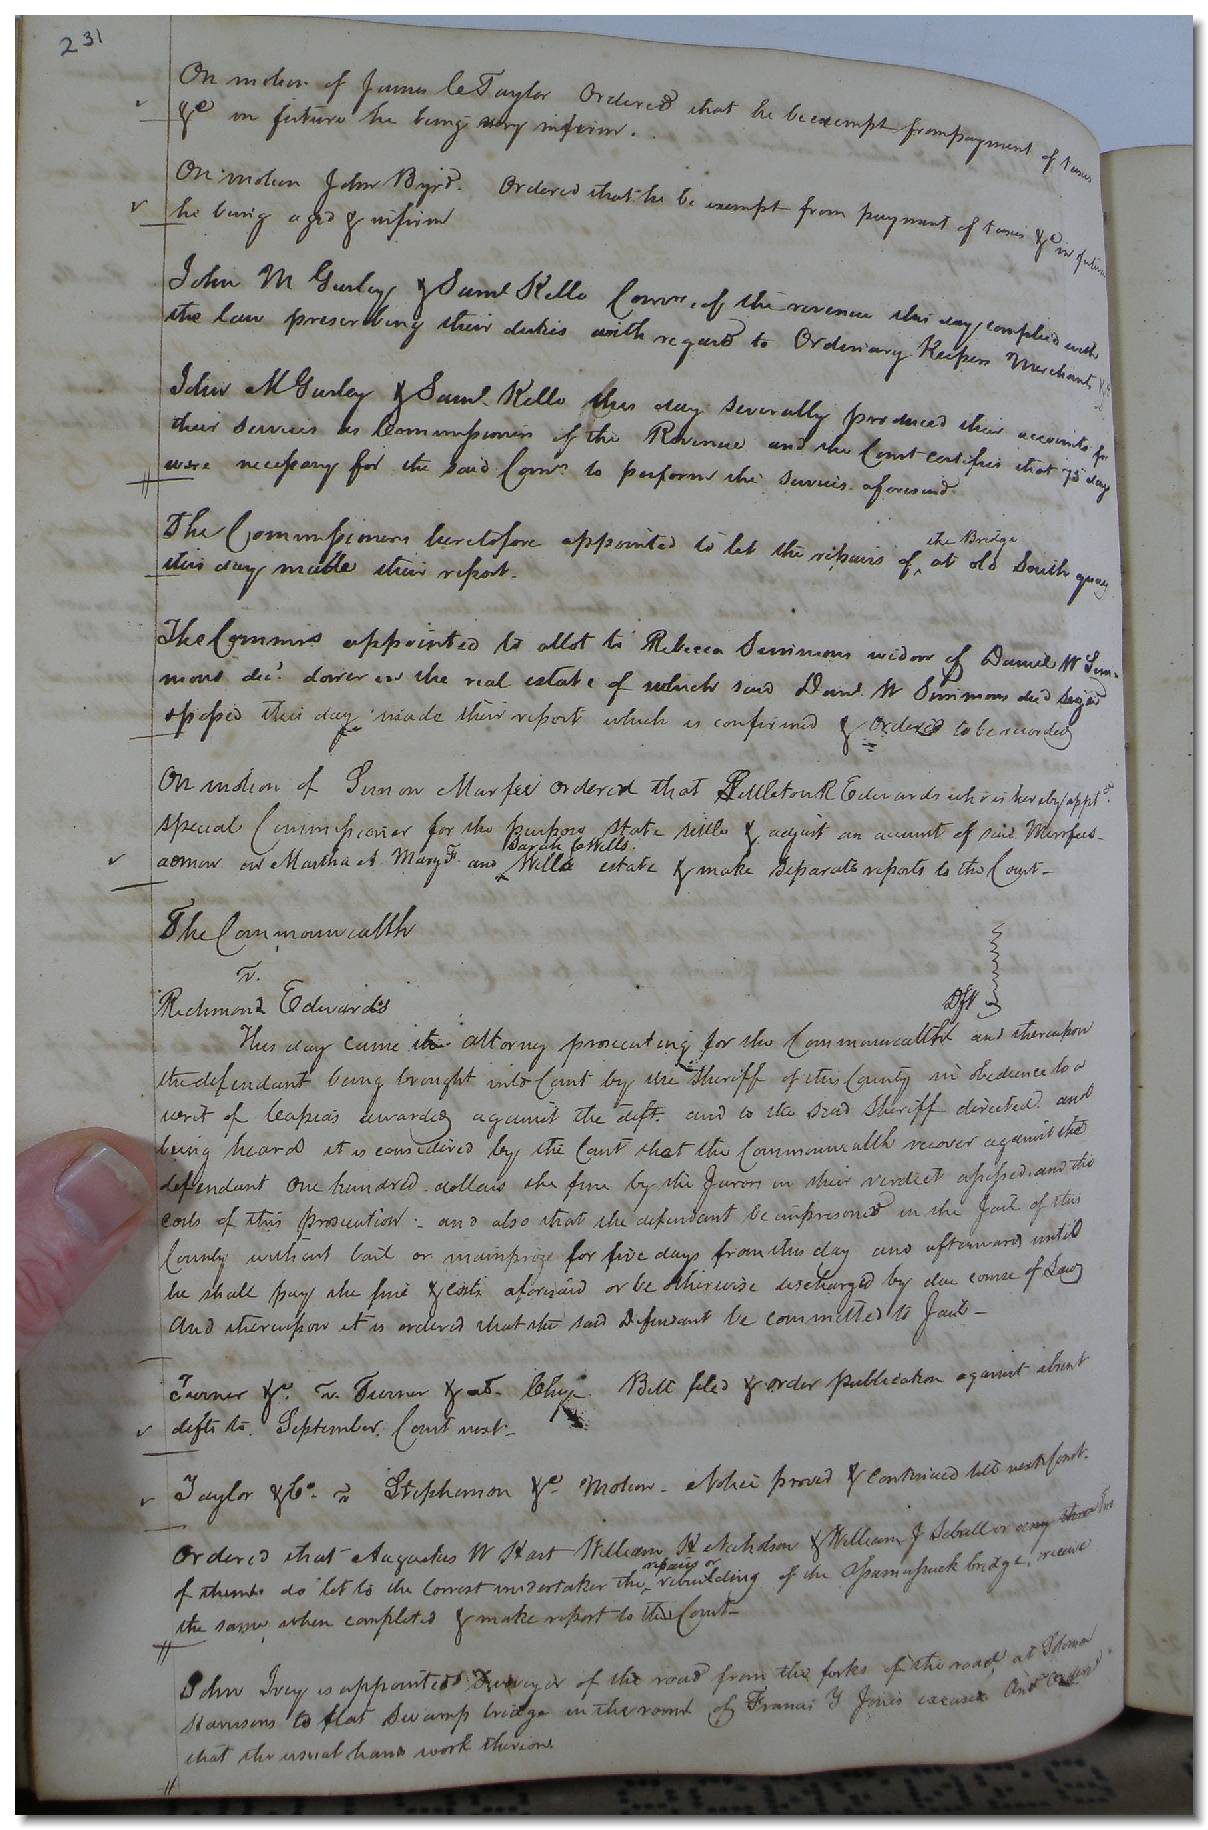 231
On motion of James C Taylor Ordered that he be exempt from payment of taxes
&c in future he being very infirm.
On motion John Byrd. Ordered that he be exempt from payment of taxes &c in future
he being aged & infirm
John M Gurley & Saml Kello Comrs of the revenue this day complied with
the law prescribing their duties with regard to Ordinary Keepers Merchants &c
John M Gurley & Saml. Kello this day severally produced their accounts for
their services as Commissioners of the Revenue and the Court certifies that 75 days
were necessary for the said Comrs to perform the services aforesaid.
The Commissioners heretofore appointed to let the repairs of ^ the Bridge at old South quay
this day made their report.
The Commrs appointed to allot to Rebecca Simmons widow of Daniel W Sim-
mons decd. dower in the real estate of which said Danl. W Simmons died seized
& possessed this day made their report which is confirmed & ordered to be recorded
On motion of Simon Murfee ordered that Littleton R Edwards who is hereby apptd.
special Commissioner for the purpose state settle & adjust an account of said Murfees
admon on Martha A Mary F. and ^ Sarah C Wells. Wells estate & make separate reports to the Court-
The Commonwealth
v.
Richmond Edwards Dft
This day came the attorney prosecuting for the Commonwealth and thereupon
the defendant being brought into Court by the Sheriff of this County in obedience to a
writ of Capias awarded against the deft. and to the said Sheriff directed and
being heard it is considered by the Court that the Commonwealth recover against the
defendant one hundred dollars the fine by the Jurors in their verdict assessed and the
costs of this prosecution - and also that the defendant be imprisoned in the Jail of this
County without bail or mainprize for five days from this day and afterwards until
he shall pay the fine & costs aforesaid or be otherwise discharged by due course of Law
And thereupon it is ordered that the said Defendant be committed to Jail-
Turner &c. v. Turner & al. Chy. Bill filed & order publication against absent
defts to September Court next-
Taylor & Co. v Stephenson &c. Motion - Notice proved & continued till next Court.
Ordered that Augustus W Hart William H Nicholson & William J Sebrell or any two
of them do let to the lowest undertaker the ^ repairs or rebuilding of the Assamoosick bridge, receive
the same when completed & make report to the Court-
John Ivey is appointed Surveyor of the road from the forks of the road at
Harrisons to flat Swamp bridge in the room of Francis Y Jones excused And Ordered
that the usual hands work thereon.